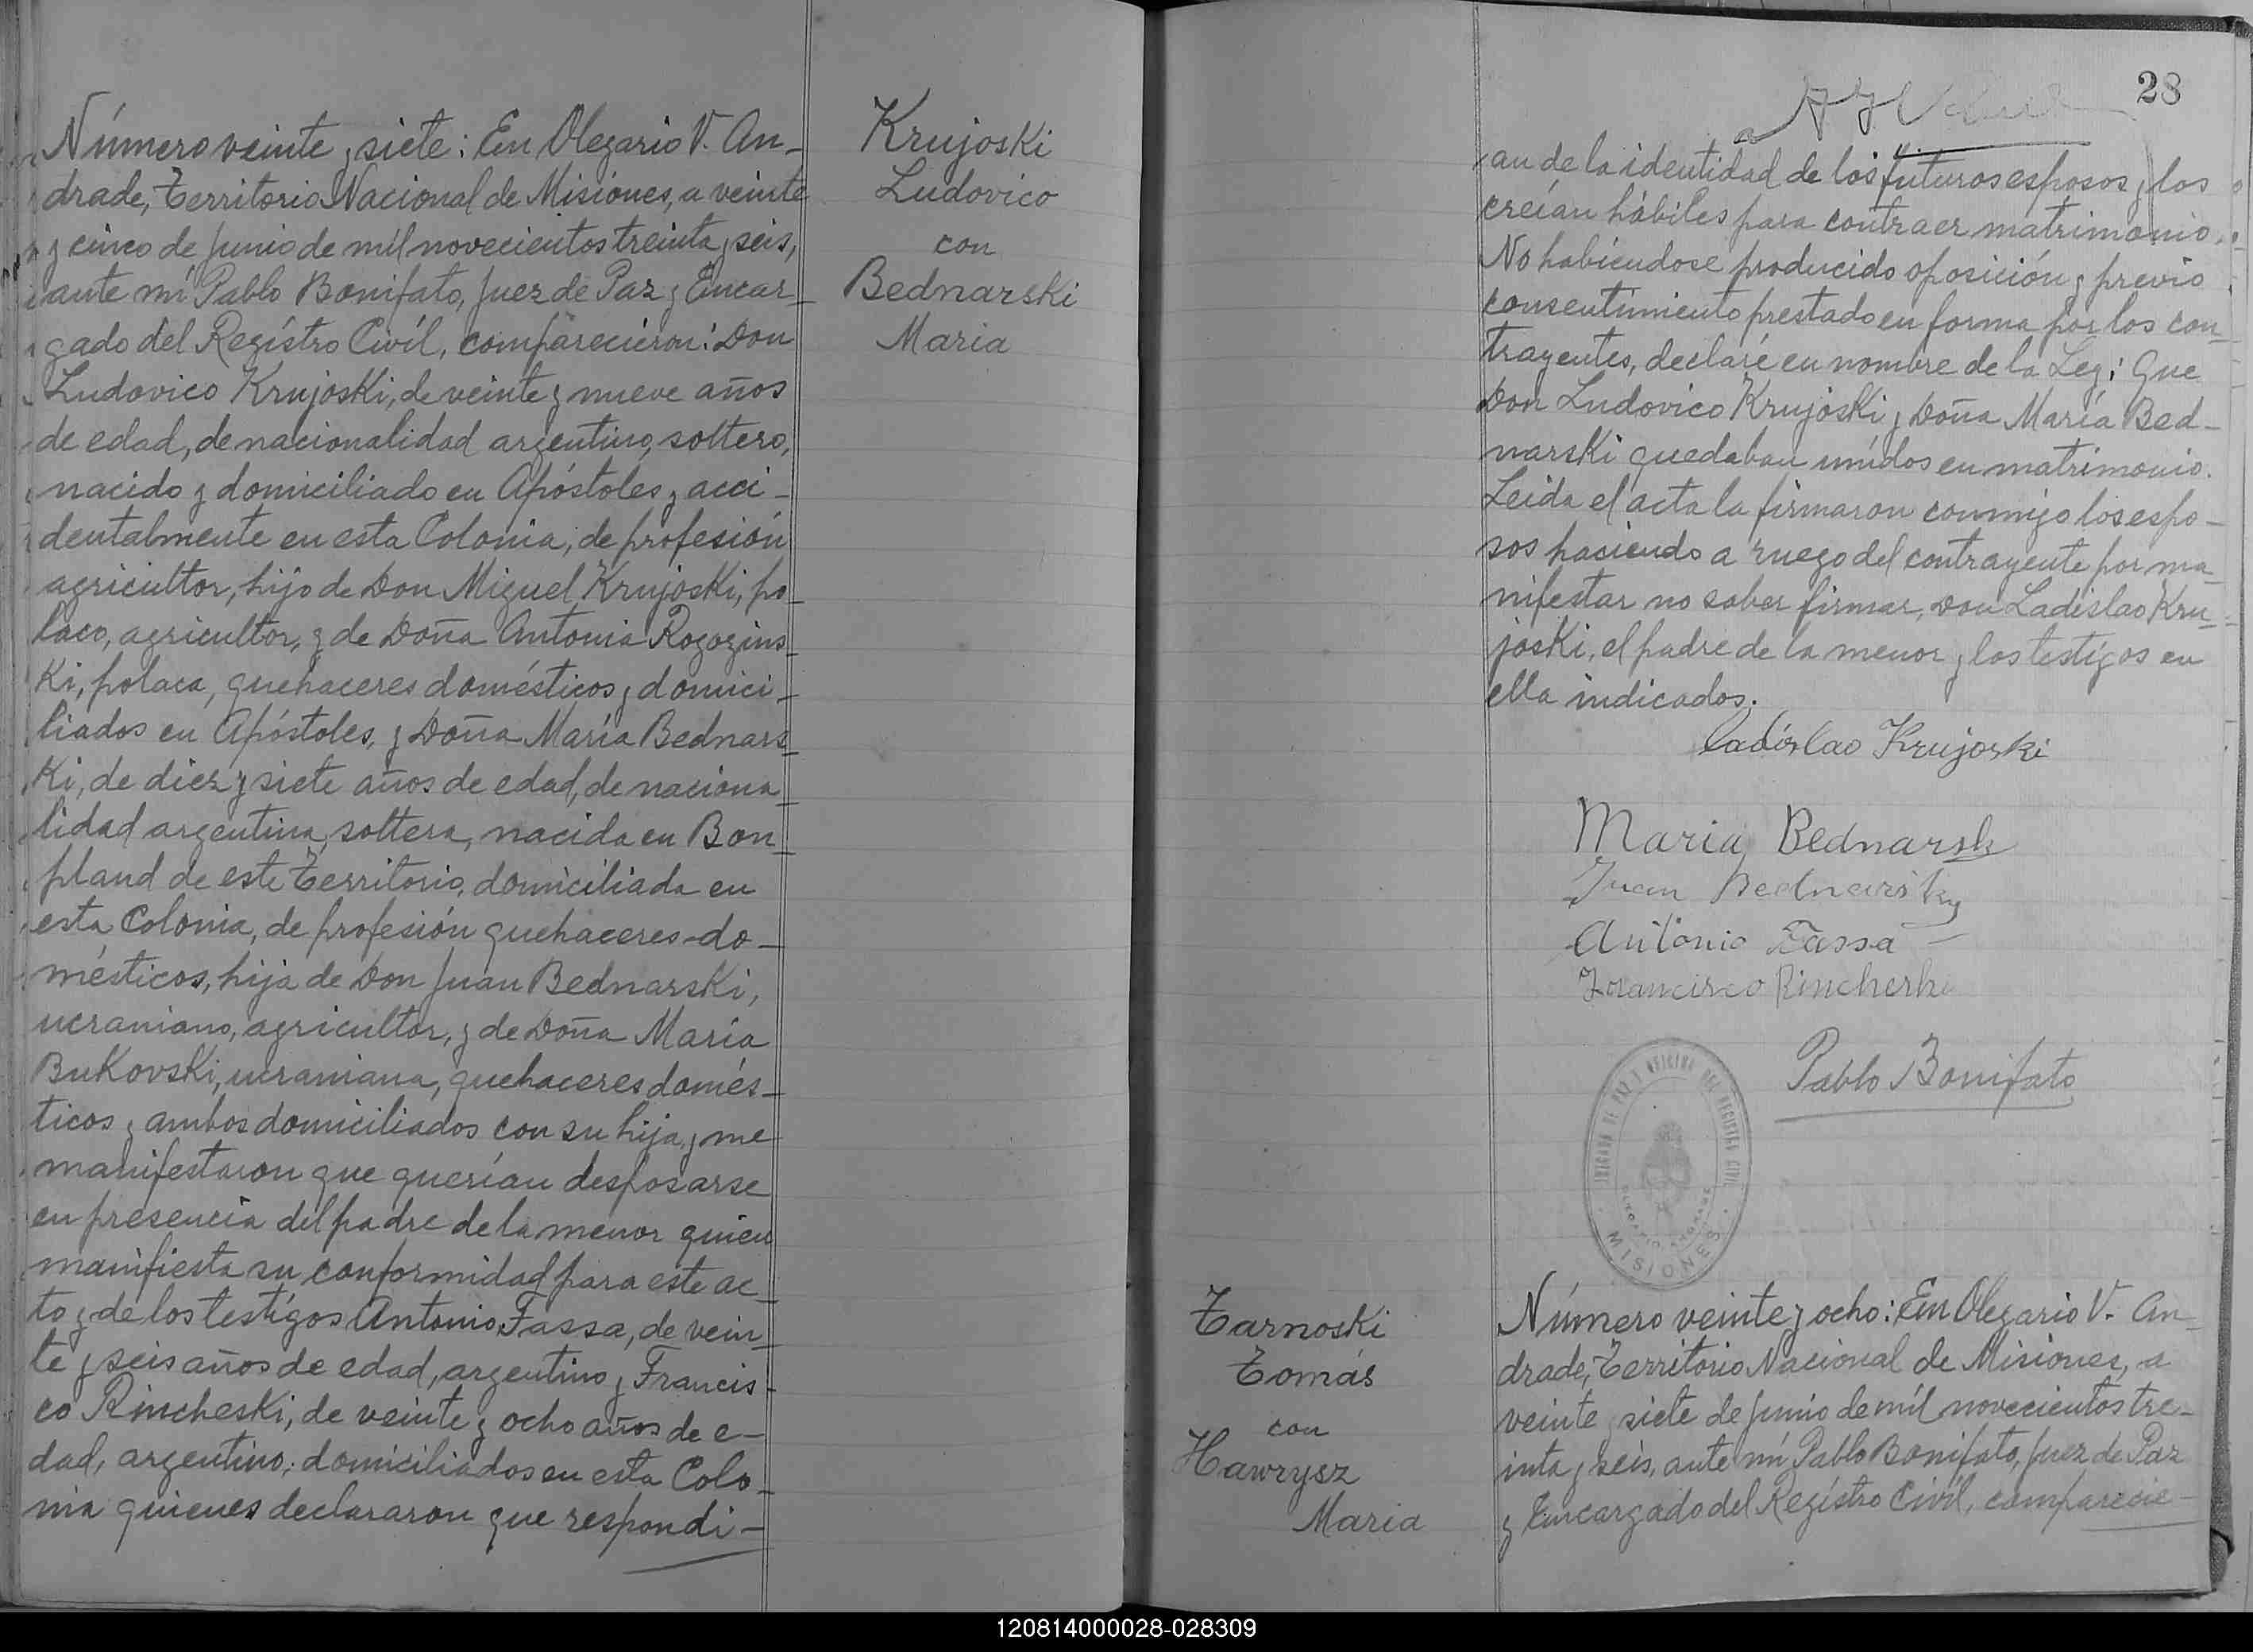 Número veinte y siete: En Olegario V. An-
drade, Territorio Nacional de Misiones, a veinte
y cinco de Junio de mil novecientos treinta y seis,
ante mí Pablo Bonifato, Juez de Paz y Encar-
gado del Registro Civil, comparecieron: Don
Ludovico Krujoski, de veinte y nueve años
de edad, de nacionalidad argentino, soltero,
nacido y domiciliado en Apóstoles y acci-
dentalmente en esta Colonia, de profesión
agricultor, hijo de Don Miguel Krujoski, po-
laco, agricultor, y de Doña Antonia Rogozins-
ki, polaca, quehaceres domésticos y domici-
liados en Apóstoles, y Doña María Bednars-
ki, de diez y siete años de edad, de naciona-
lidad argentina, soltera, nacida en Bon-
pland de este Territorio, domiciliada en
esta Colonia, de profesión quehaceres do-
mésticos, hija de Don Juan Bednarski,
ucraniano, agricultor, y de Doña María
Bukovski, ucraniana, quehaceres domés-
ticos y ambos domiciliados con su hija, y me
manifestaron que querían desposarse
en presencia del padre de la menor quien
manifiesta su conformidad para este ac-
to y de los testigos Antonio Fassa, de vein-
te y seis años de edad, argentino y Francis-
co Rincheski, de veinte y ocho años de e-
dad, argentino; domiciliados en esta Colo-
nia quienes declararon que respondi-
Krujoski
Ludovico
con
Bednarski
Maria
28
an de la identidad de los futuros esposos y los
creían hábiles para contraer matrimonio.
No habiendose producido oposición y previo
consentimiento prestado en forma por los con-
trayentes, declaré en nombre de la Ley: Que
Don Ludovico Krujoski y Doña María Bed-
narski quedaban unidos en matrimonio.
Leida el acta la firmaron conmigo los espo-
sos haciendo a ruego del contrayente por ma-
nifestar no saber firmar, Don Ladislao Kru-
joski, el padre de la menor y los testigos en
ella indicados.
Ladislao Krujoski
Maria Bednarsk
Juan Bednarsky
Antonio Fassa
Francisco Rincheski
Pablo Bonifato
JUZGADO DE PAZ Y OFICINA DEL REGISTRO CIVIL
OLEGARIO ANDRADE
MISIONES
Tarnoski
Tomás
con
Hawrysz
Maria
Número veinte y ocho: En Olegario V. An-
drade, Territorio Nacional de Misiones, a
veinte y siete de Junio de mil novecientos tre-
inta y seis, ante mí Pablo Bonifato, Juez de Paz
y Encargado del Registro Civil, comparecie-
120814000028-028309